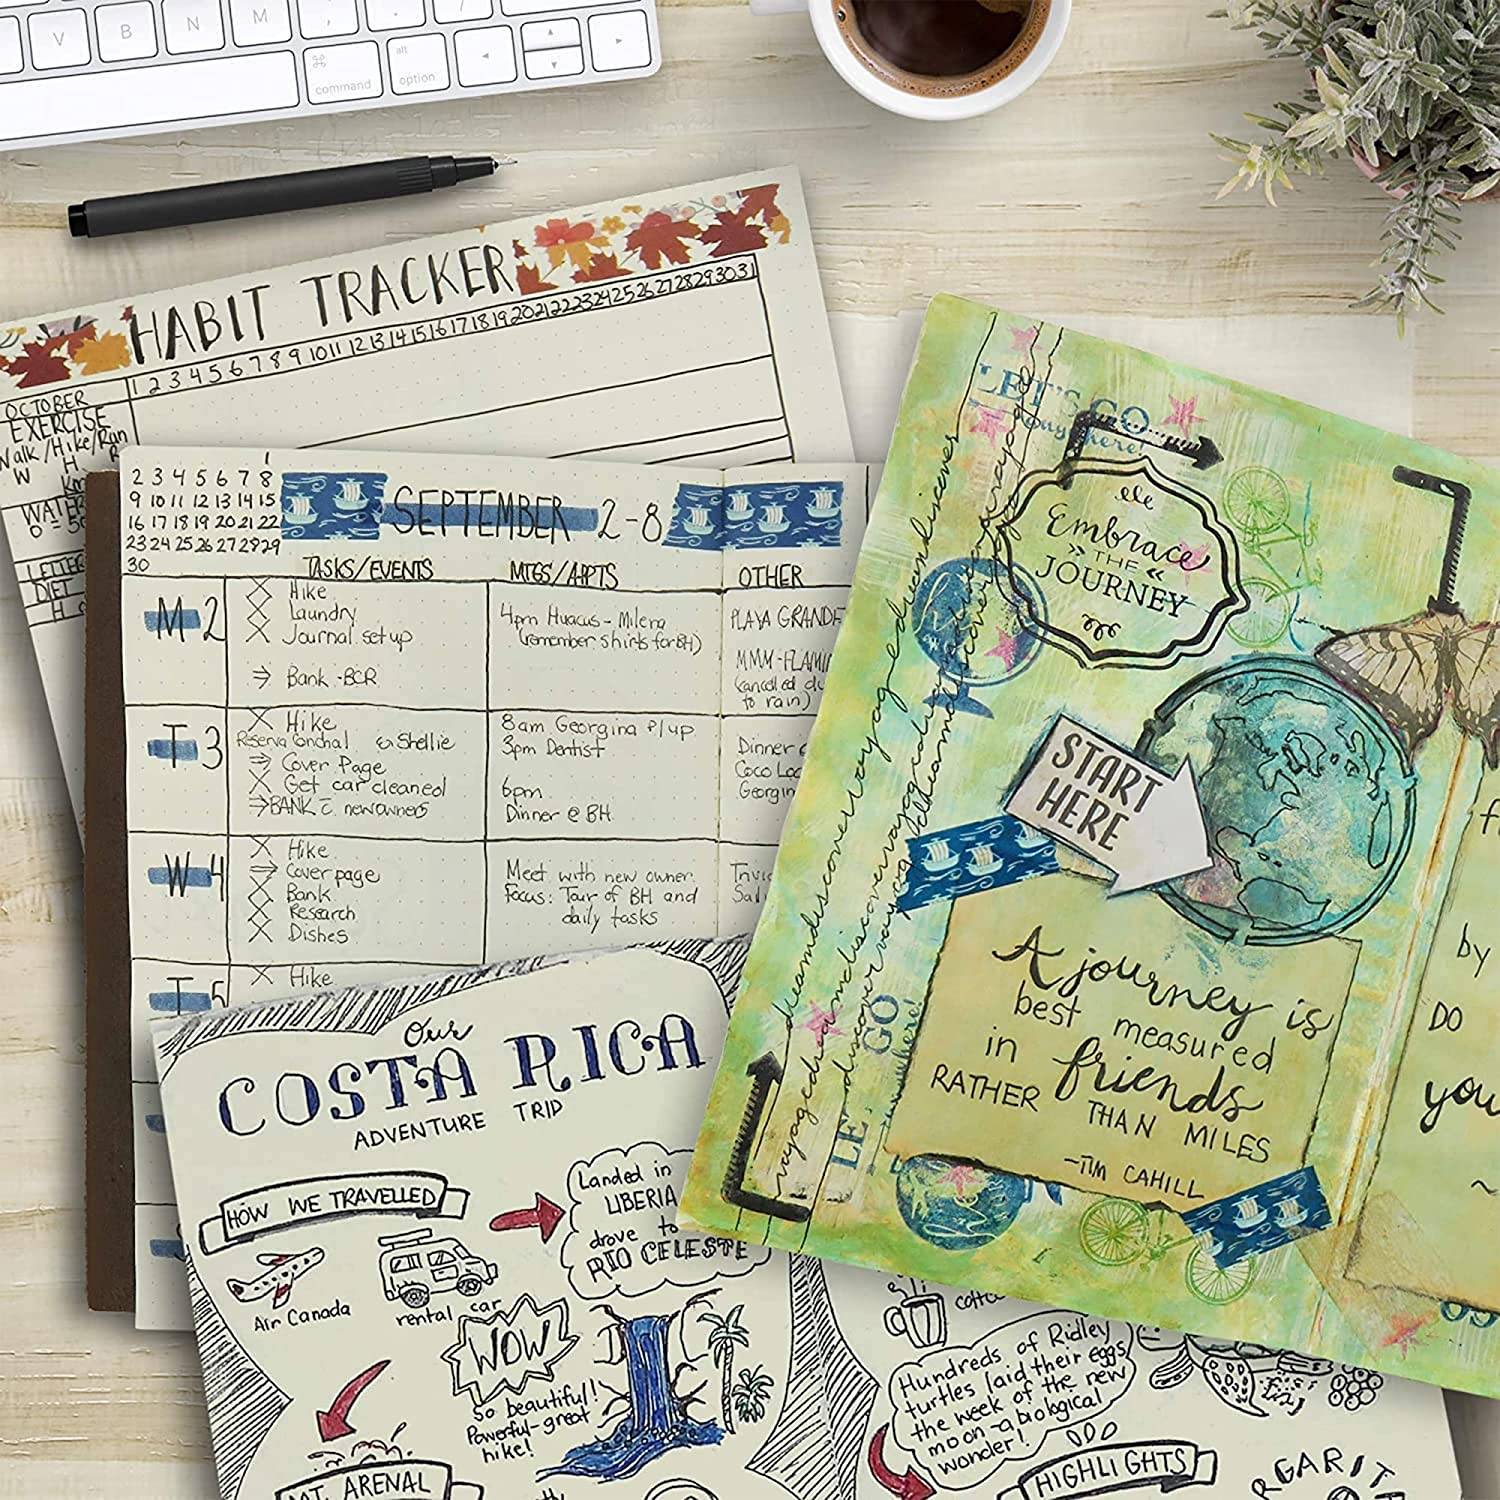 V B N M
command
alt
option
HABIT TRACKER
1 2 3 4 5 6 7 8 9 10 11 12 13 14 15 16 17 18 19 20 21 22 23 24 25 26 27 28 29 30 31
OCTOBER
EXERCISE
Walk/Hike/Run
W H R
Km
WATER
LETTER
DIET
1
2 3 4 5 6 7 8
9 10 11 12 13 14 15
16 17 18 19 20 21 22
23 24 25 26 27 28 29
30
SEPTEMBER 2-8
TASKS/EVENTS MTGS/APPTS OTHER
M 2
X Hike
X Laundry
X Journal set up
⇒ Bank - BCR
4pm Huacus - Milena
(remember shirts for BH)
PLAYA GRANDE
MMM-FLAMI
(cancelled du
to rain)
T 3
X Hike
Reserva Conchal Shellie
⇒ Cover Page
X Get car cleaned
⇒ BANK c̄ new owners
8am Georgina P/up
3pm Dentist
6pm
Dinner @ BH
Dinner
Coco Loc
Georgin
W 4
X Hike
⇒ Cover page
X Bank
X Research
X Dishes
Meet with new owner
Focus: Tour of BH and
daily tasks
Trivi
Sal
T 5
X Hike
Our
COSTA RICA
ADVENTURE TRIP
HOW WE TRAVELLED
Air Canada
rental car
Landed in
LIBERIA
drove to
RIO CELESTE
WOW
So beautiful!
Powerful-great
hike!
MT. ARENAL
Hundreds of Ridley
turtles laid their eggs
the week of the new
moon - a biological
wonder!
HIGHLIGHTS
LET'S GO
anywhere!
Embrace
» THE «
JOURNEY
START
HERE
A journey is
best measured
in friends
RATHER THAN MILES
-TIM CAHILL
LET'S GO
anywhere!
f
by
DO
you
~